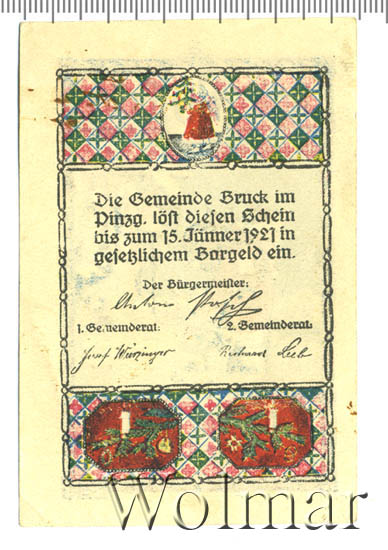 Die Gemeinde Bruck im
Pinzg. löst diesen Schein
bis zum 15. Jänner 1921 in
gesetzlichem Bargeld ein.
Der Bürgermeister:
Anton
1. Gemeinderat:
2. Gemeinderat:
Josef Würzinger
Richard Leeb
Wolmar